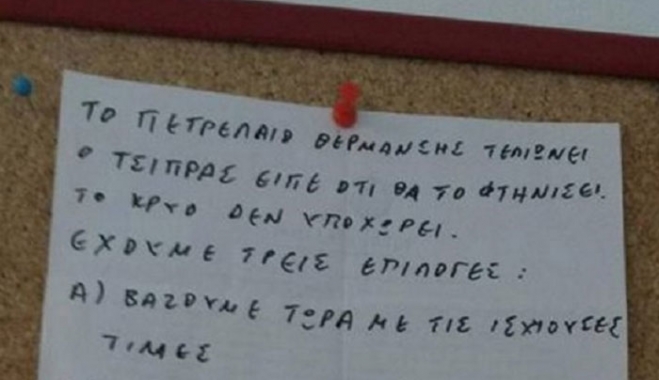 ΤΟ ΠΕΤΡΕΛΑΙΟ ΘΕΡΜΑΝΣΗΣ ΤΕΛΙΩΝΕΙ
Ο ΤΣΙΠΡΑΣ ΕΙΠΕ ΟΤΙ ΘΑ ΤΟ ΦΤΗΝΙΣΕΙ.
ΤΟ ΚΡΥΟ ΔΕΝ ΥΠΟΧΩΡΕΙ.
ΕΧΟΥΜΕ ΤΡΕΙΣ ΕΠΙΛΟΓΕΣ:
Α) ΒΑΖΟΥΜΕ ΤΩΡΑ ΜΕ ΤΙΣ ΙΣΧΥΟΥΣΕΣ
ΤΙΜΕΣ